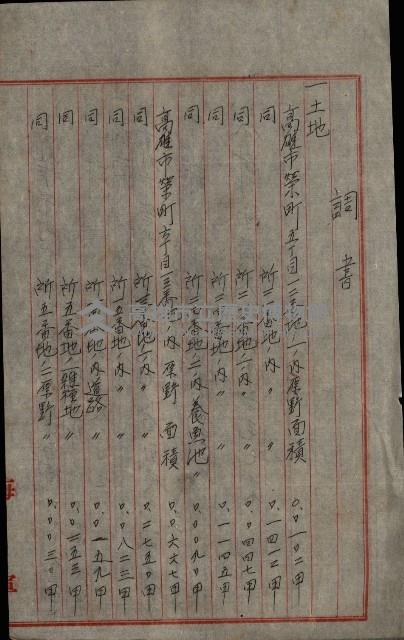 調書
一土地
高雄市榮町五丁目一三番地ノ一ノ内原野面積〇.〇一〇二甲
同 所二番地ノ内〃〇.一四一二甲
同 所二番地ノ内〃〇.〇四四七甲
同 所二番地ノ内〃〇.一一四五甲
同 所二番地ノ二ノ内養魚池〃〇.〇〇九〇甲
高雄市榮町六丁目一三番ノ内原野面積〇.〇六六七甲
同 番地ノ内〃〇.二七五〇甲
同 所一五番地ノ内〃〇.〇八二三甲
同 番地ノ内道路〃〇.〇一五九甲
同 所五番地ノ二雜種地〃〇.〇二五三甲
同 所五番地ノ二原野〃〇.〇〇三〇甲
海 軍